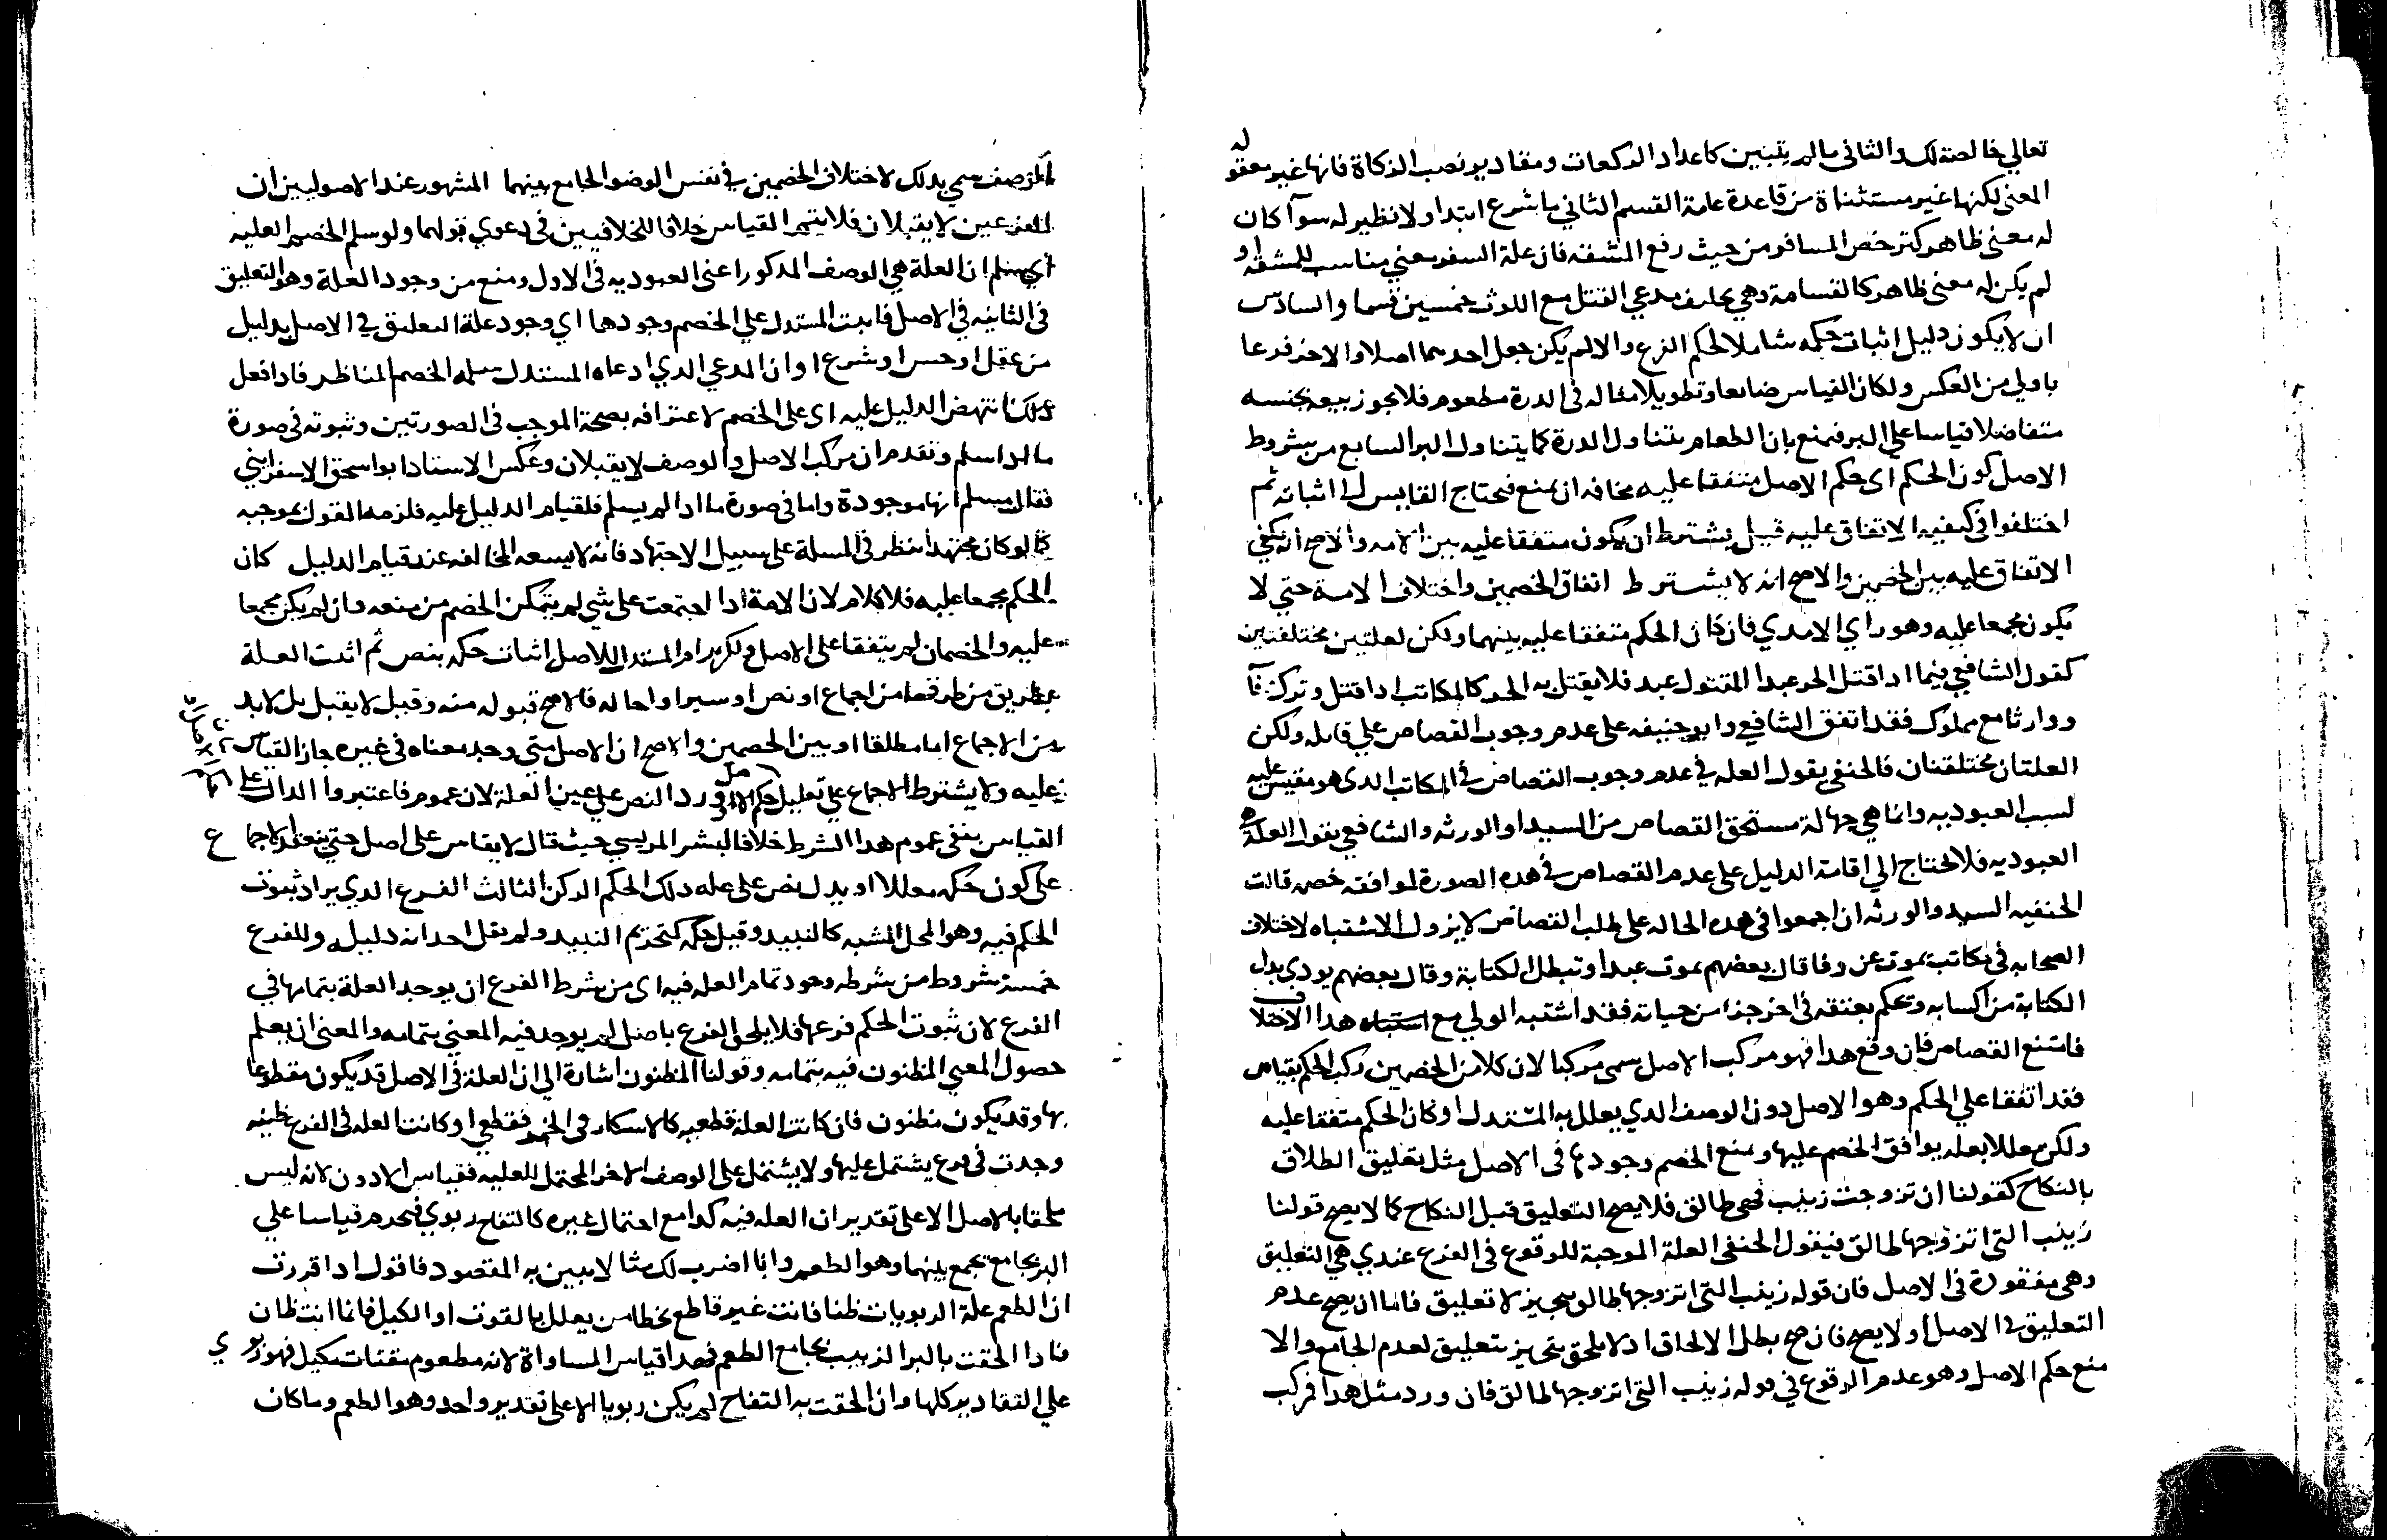 تعالي خالصة لك والثاني ما لم يتبين كاعداد الركعات ومقادير نصب الزكاة فانها غير معقوله
المعني لكنها غير مستثناة من قاعدة عامة القسم الثاني ما شرع ابتدا ولا نظير له سوآ كان
له معني ظاهر كترخص المسافر من حيث رفع المشقه فان علة السفر معني مناسب للمشقه او
لم يكن له معني ظاهر كالقسامة وهي تحليف مدعي القتل مع اللوث خمسين قسما والسادس
ان لا يكون دليل اثبات حكمه شاملا لحكم الفرع والا لم يكن جعل احدهما اصلا والاخر فرعا
باولي من العكس ولكان القياس ضايعا وتطويلا مثاله في الدرة مطعوم فلا يجوز بيعه بجنسه
متفاضلا قياسا علي البر فيمنع بان الطعام يتناول الدرة كما يتناول البر السابع من شروط
الاصل كون الحكم اي حكم الاصل متفقا عليه مخافه ان يمنع فيحتاج القايس الي اثباته ثم
اختلفوا في كيفيه الاتفاق عليه فقيل يشترط ان يكون متفقا عليه بين الامه والاصح انه يكفي
الاتفاق عليه بين الخصمين والاصح انه لا يشترط اتفاق الخصمين واختلاف الامة حتي لا
يكون مجمعا عليه وهو راي الامدي فان كان الحكم متفقا عليه بينهما ولكن لعلتين مختلفتين
كقول الشافعي فيما ادا قتل الحر عبدا المقتول عبد فلا يقتل به الحر كالمكاتب ادا قتل وترك وفآ
ووارثا مع مملوك فقد اتفق الشافعي وابو حنيفه علي عدم وجوب القصاص علي قاتله ولكن
العلتان مختلفتان فالحنفي يقول العله في عدم وجوب القصاص في المكاتب الدي هو مقيس عليه
لسبب العبوديه وانما هي جهالة مستحق القصاص من السيد او الورثه والشافعي يقول العله هي
العبوديه فلا يحتاج الي اقامة الدليل علي عدم القصاص في هده الصورة لموافقه خصمه قالت
الحنفيه السيد والورثه ان اجمعوا في هده الحاله علي طلب القصاص لا يزول الاشتباه لاختلاف
الصحابه في مكاتب يموت عن وفا قال بعضهم يموت عبدا وتبطل الكتابة وقال بعضهم يودي بدل
الكتابة من اكسابه ويحكم بعتقه في اخر جزا من حياته فقد اشتبه الولي مع اشتباه هدا الاختلاف
فامتنع القصاص فان وقع هدا فهو مركب الاصل سمي مركبا لان كلا من الخصمين ركب الحكم بقياس
فقد اتفقا علي الحكم وهو الاصل دون الوصف الدي يعلل به المستدل او كان الحكم متفقا عليه
ولكن معللا بعله يوافق الخصم عليها ومنع الخصم وجودها في الاصل مثل تعليق الطلاق
بالنكاح كقولنا ان تزوجت زينب فهي طالق فلا يصح التعليق قبل النكاح كما لا يصح قولنا
زينب التي اتزوجها طالق فيقول الحنفي العلة الموجبة للوقوع في الفرع عندي هي التعليق
وهي مفقودة في الاصل فان قوله زينب التي اتزوجها طالق تنجيز لا تعليق فاما ان يصح عدم
التعليق في الاصل او لا يصح فان صح بطل الالحاق اد لا يلحق تنجيز بتعليق لعدم الجامع والا
منع حكم الاصل وهو عدم الوقوع في قوله زينب التي اتزوجها طالق فان ورد مثل هدا فمركب
الوصف سمي بدلك لاختلاف الخصمين في نفس الوصف الجامع بينهما المشهور عند الاصوليين ان
النوعين لا يقبلان فلا يتم القياس خلافا للخلافيين في دعوي قبولهما ولو سلم الخصم العليه
اي سلم ان العلة هي الوصف المدكور اعني العبوديه في الاول ومنع من وجود العلة وهو التعليق
في الثانيه في الاصل فاثبت المستدل علي الخصم وجودها اي وجود علة التعليق في الاصل بدليل
من عقل او حس او شرع او ان المدعي الدي ادعاه المستدل سلمه الخصم المناظر فادا فعل
دلك انتهض الدليل عليه اي علي الخصم لاعترافه بصحة الموجب في الصورتين وثبوته في صورة
ما ادا سلم وتقدم ان مركب الاصل والوصف لا يقبلان وعكس الاستاد ابو اسحق الاسفرايني
فقال يسلم انها موجودة واما في صورة ما ادا لم يسلم فلقيام الدليل عليه فلزمه القول بموجبه
كما لو كان مجتهدا ينظر في المسلة علي سبيل الاجتهاد فانه لا يسعه المخالفه عند قيام الدليل كان
الحكم مجمعا عليه فلا كلام لان الامة ادا اجتمعت علي شي لم يتمكن الخصم من منعه وان لم يكن مجمعا
عليه والخصمان لم يتفقا علي الاصل ولكن رام المستدل للاصل اثبات حكمه بنص ثم اثبت العلة
بطريق من طرقها من اجماع او نص او سبر او احاله فالاصح قبوله منه وقيل لا يقبل بل لا بد
من الاجماع اما مطلقا او بين الخصمين والاصح ان الاصل متي وجد معناه في غيره جاز القياس
عليه ولا يشترط الاجماع علي تعليل حكم الاصل او ورد النص علي عين العلة لان عموم فاعتبروا الدال علي
القياس ينفي عموم هدا الشرط خلافا لبشر المريسي حيث قال لا يقاس علي اصل حتي ينعقد الاجماع
علي كون حكمه معللا او يدل نص علي عله دلك الحكم الركن الثالث الفرع الدي يراد ثبوت
الحكم فيه وهو المحل المشبه كالنبيد وقيل حكمه كتحريم النبيد ولم يقل احد انه دليله وللفرع
خمسة شروط من شرطه وجود تمام العله فيه اي من شرط الفرع ان يوجد العلة بتمامها في
الفرع لان ثبوت الحكم فرعها فلا يلحق الفرع باصل لم يوجد فيه المعني بتمامه والمعني ان يعلم
حصول المعني المظنون فيه بتمامه وقولنا المظنون اشارة الي ان العلة في الاصل قد يكون مقطوعا
بها وقد يكون مظنون فان كانت العلة قطعيه كالاسكار في الخمر فقطعي او كانت العله في الفرع ظنيه
وجدت في فرع يشتمل عليها ولا يشتمل علي الوصف الاخر المحتمل للعليه فقياس الادون لانه ليس
ملحقا بالاصل الا علي تقدير ان العله فيه كدا مع احتمال غيره كالتفاح ربوي فيحرم قياسا علي
البر بجامع يجمع بينهما وهو الطعم وانا اضرب لك مثالا يبين به المقصود فاقول ادا قررت
ان الطعم علة الربويات ظنا فانت غير قاطع بخطا من يعلل بالقوت او الكيل فانما انت ظان
فادا الحقت بالبر الزبيب بجامع الطعم فهدا قياس المساواة لانه مطعوم مقتات مكيل فهو ربوي
علي التقادير كلها وان الحقت به التفاح لم يكن ربويا الا علي تقدير واحد وهو الطعم وما كان